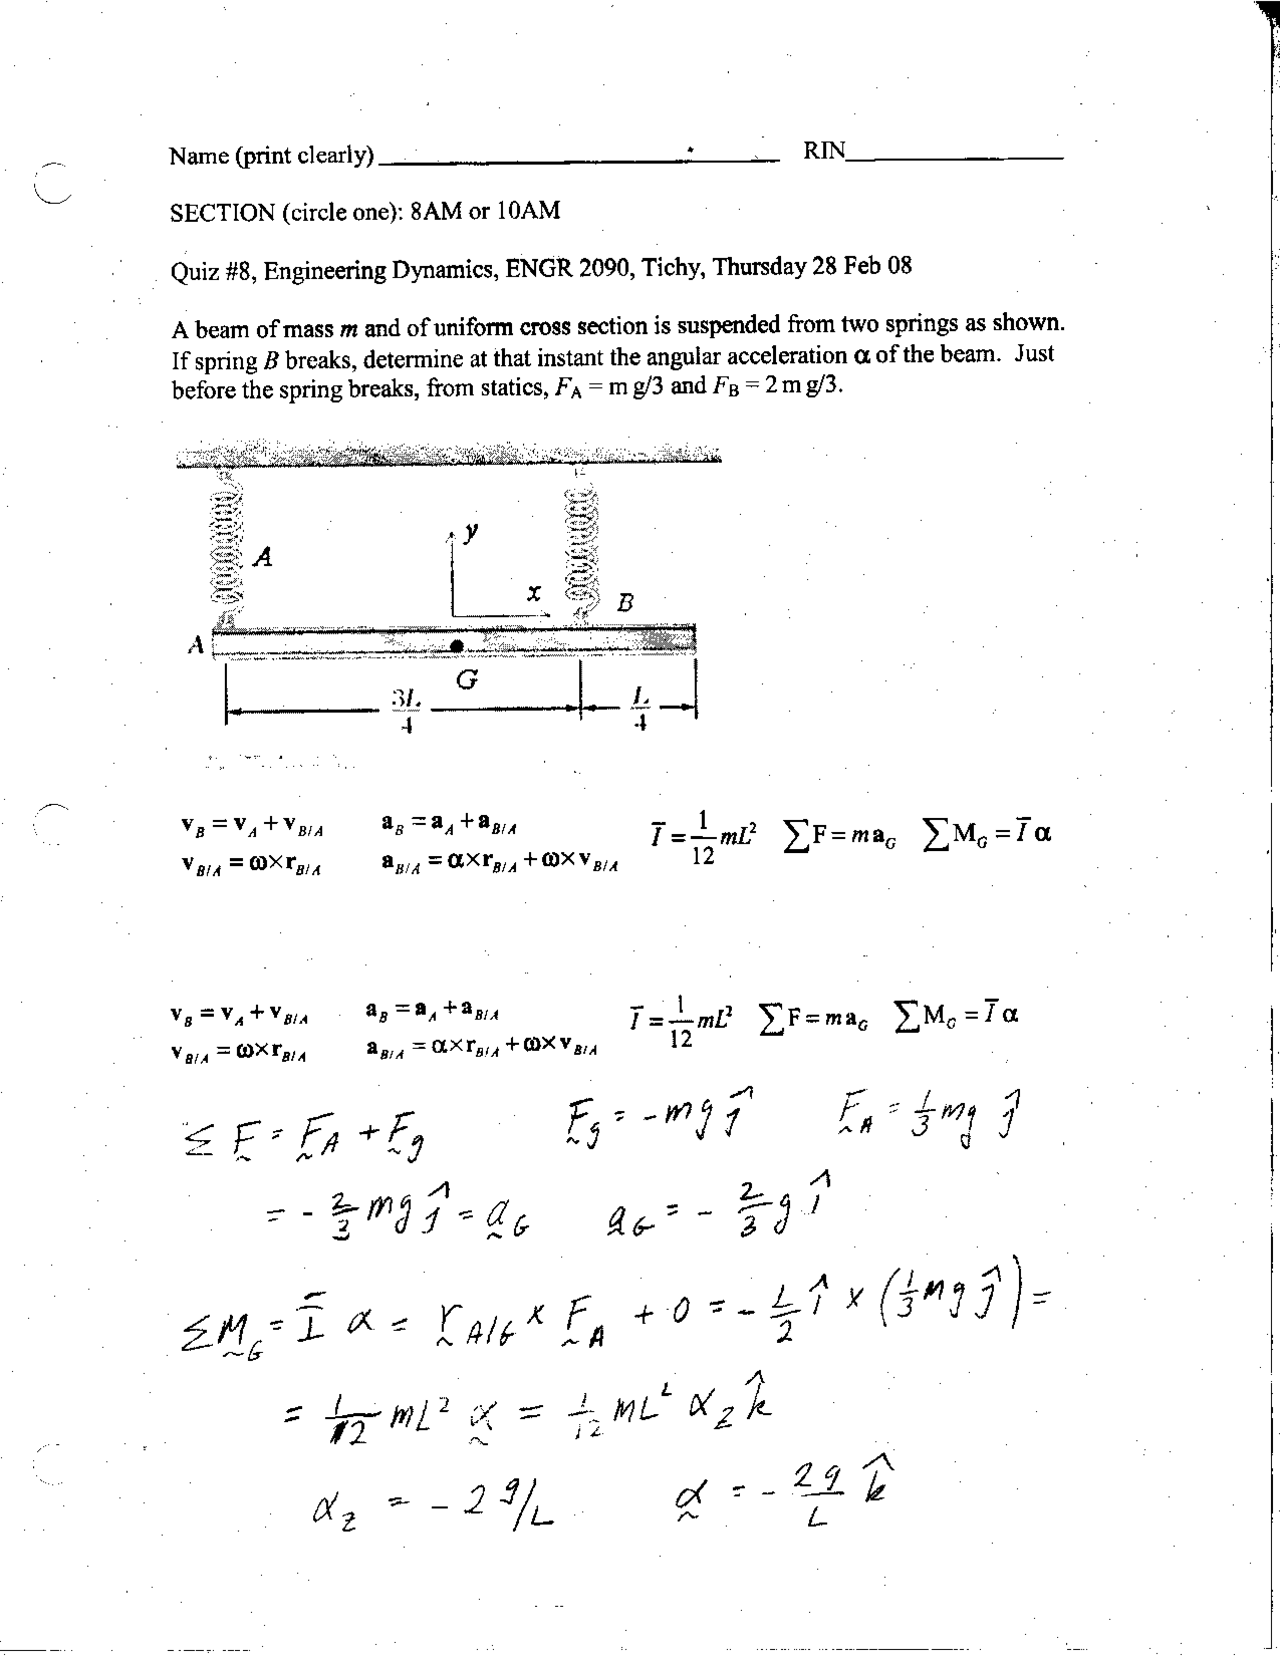 Name (print clearly)____ RIN____
SECTION (circle one): 8AM or 10AM
Quiz #8, Engineering Dynamics, ENGR 2090, Tichy, Thursday 28 Feb 08
A beam of mass m and of uniform cross section is suspended from two springs as shown.
If spring B breaks, determine at that instant the angular acceleration α of the beam. Just
before the spring breaks, from statics, F_A = m g/3 and F_B = 2 m g/3.
y
A
x
B
A
G
3L/4 L/4
v_B = v_A + v_B/A a_B = a_A + a_B/A Ī = 1/12 mL² ∑F = m a_G ∑M_G = Ī α
v_B/A = ω×r_B/A a_B/A = α×r_B/A + ω×v_B/A
v_B = v_A + v_B/A a_B = a_A + a_B/A Ī = 1/12 mL² ∑F = m a_G ∑M_G = Ī α
v_B/A = ω×r_B/A a_B/A = α×r_B/A + ω×v_B/A
∑F = F_A + F_g F_g = -mg ĵ F_A = 1/3 mg ĵ
= - 2/3 mg ĵ = a_G a_G = - 2/3 g î
∑M_G = Ī α = r_A/G × F_A + 0 = - L/2 î × (1/3 mg ĵ) =
= 1/12 mL² α = 1/12 mL² α_z k̂
α_z = - 2 g/L α = - 2g/L k̂